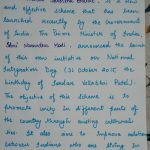 is a new
and effective scheme that has been
launched recently by the Government
of India. The Prime Minister of India,
Shri Narendra Modi announced the launch
of this new initiative on National
Integration Day (31 October 2015
birthday of Sardar Vallabhbhai Patel).
The objective of this scheme is to
promote unity in different parts of
the country through exciting cultural
It also aims to improve relation
between Indians who are living in